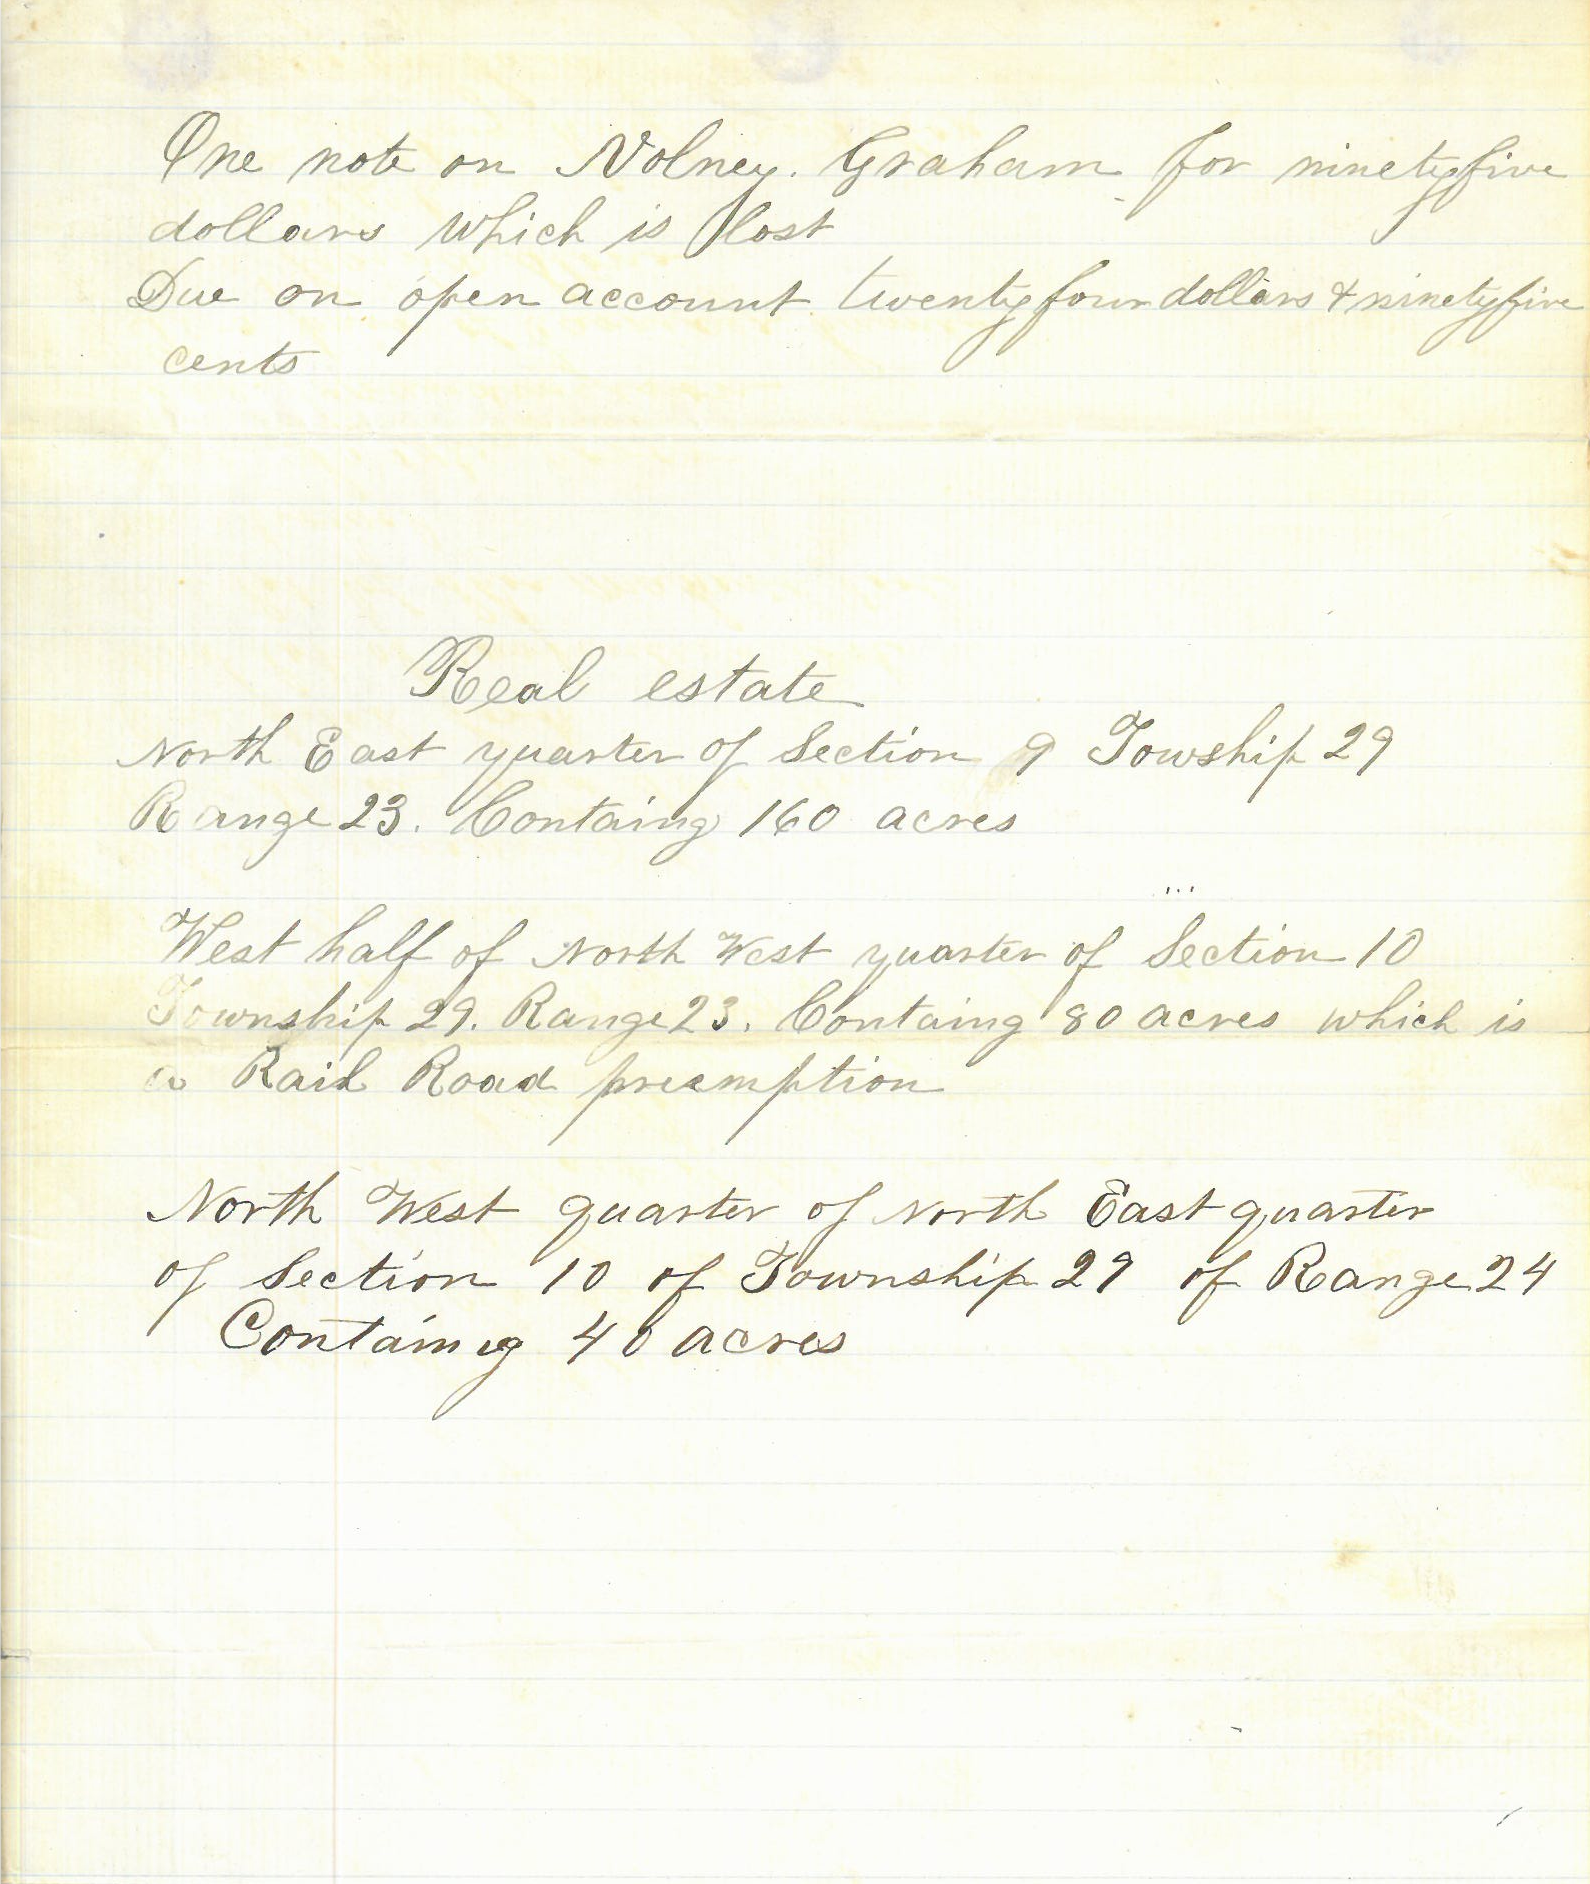 One note on Volney. Graham for ninetyfive
dollars which is lost
Due on open account twentyfour dollars & ninetyfive
cents
Real estate
North East quarter of Section 9 Towship 29
Range 23. Containg 160 acres
West half of North West quarter of Section 10
Township 29. Range 23. Containg 80 acres which is
a Rail Road preemption
North West quarter of North East quarter
of Section 10 of Township 29 of Range 24
Containig 40 acres